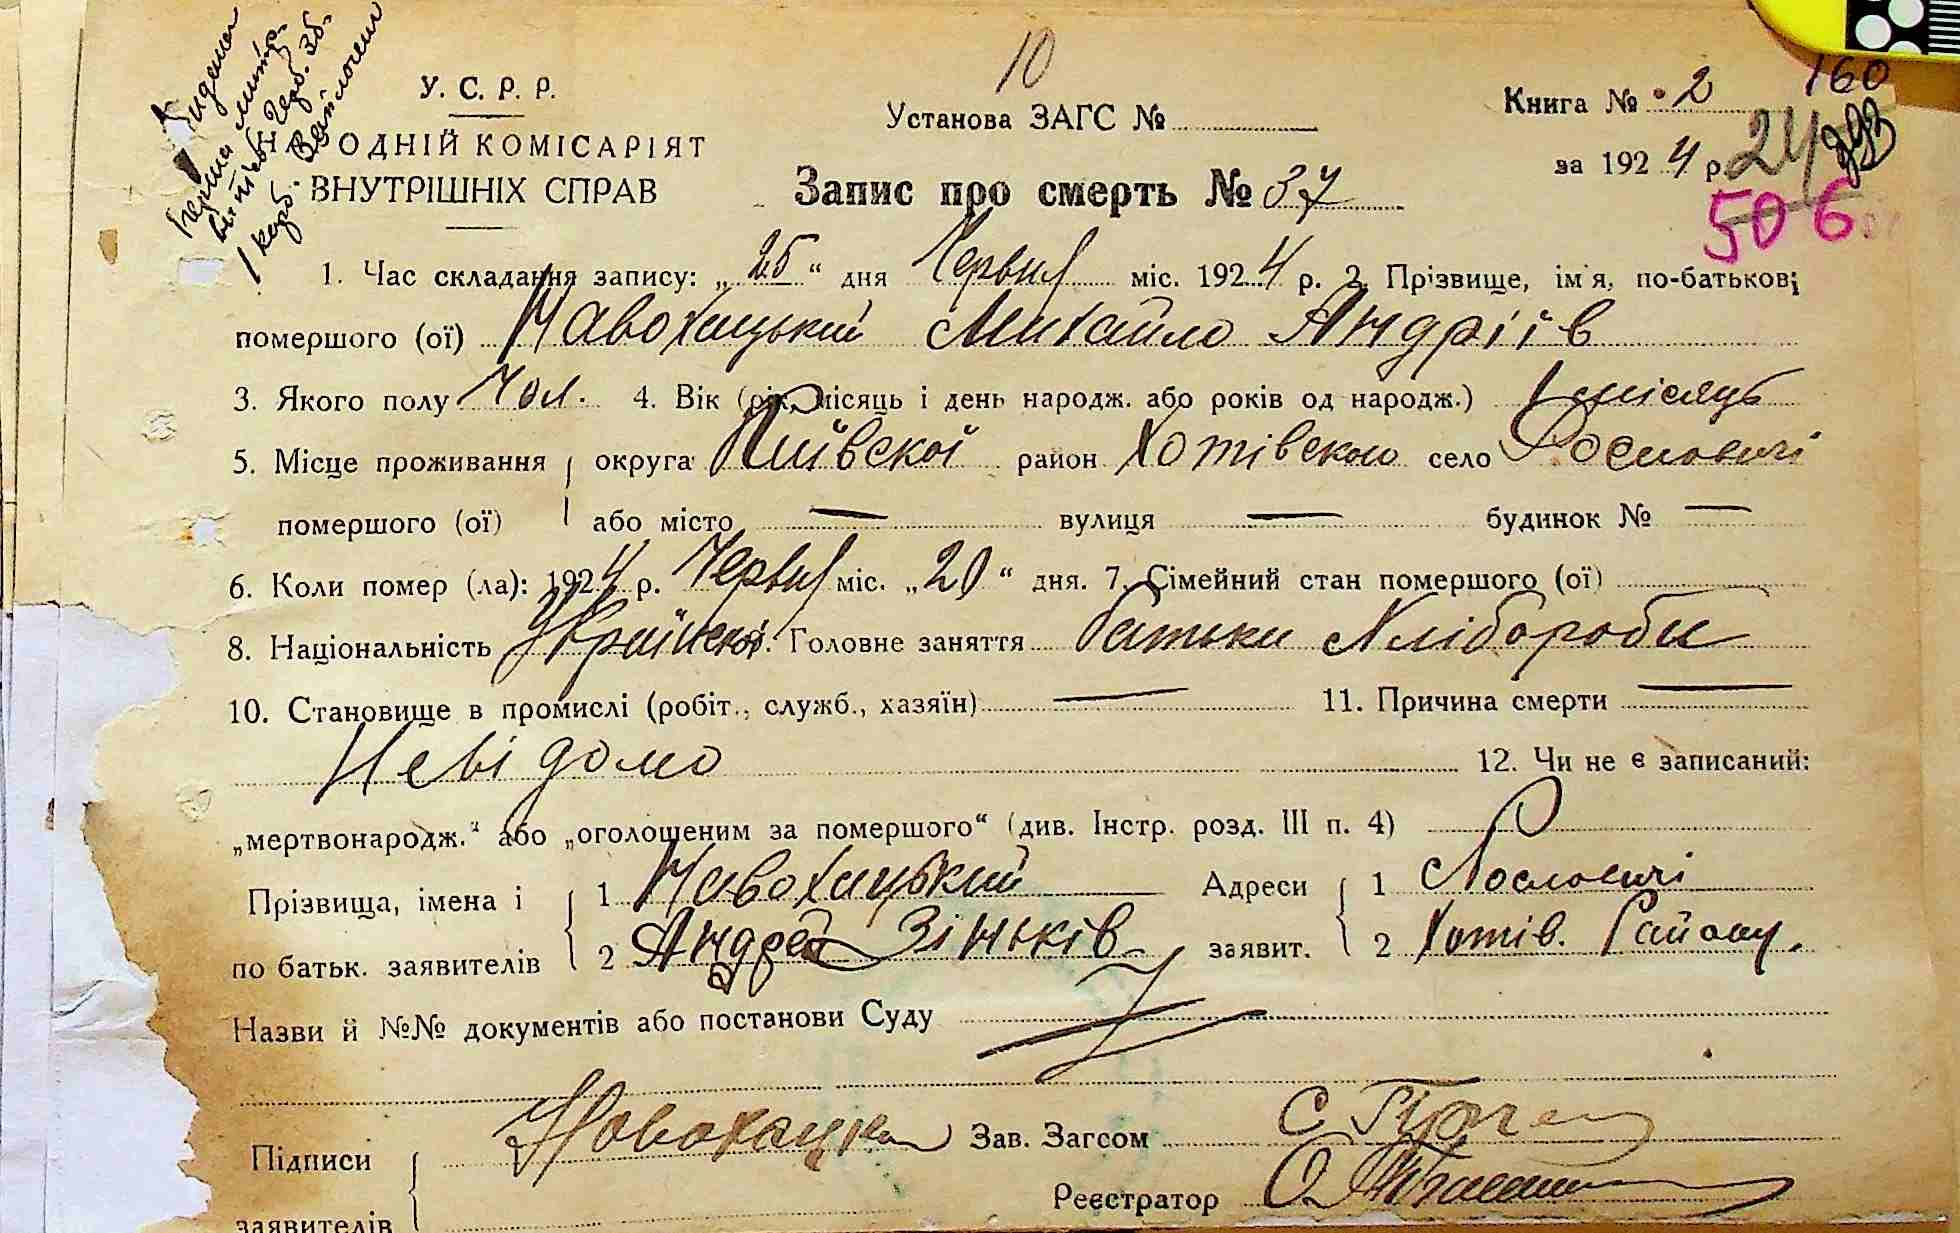 10
160
У. С. Р. Р.
Установа ЗАГС №
Книга № 2
ОДНІЙ КОМІСАРІЯТ
за 1924 р.
24
ВНУТРІШНІХ СПРАВ
Запис про смерть № 37
506
1. Час складання запису: „25“ дня Червня міс. 1924 р. 2. Прізвище, ім'я, по-батькові
помершого (ої) Навохацький Михайло Андріїв
3. Якого полу Чол. 4. Вік (рік, місяць і день народж. або років од народж.) 1 місяць
5. Місце проживання округа Київскої район Хотівского село
помершого (ої) або місто — вулиця — будинок № —
6. Коли помер (ла): 1924 р. Червня міс. „20“ дня. 7. Сімейний стан помершого (ої)
8. Національність Українскої. Головне заняття батьки Хлібороби
10. Становище в промислі (робіт., служб., хазяїн) — 11. Причина смерти —
Невідомо 12. Чи не є записаний:
„мертвонародж.“ або „оголошеним за помершого“ (див. Інстр. розд. III п. 4)
Прізвища, імена і 1 Навохацький Адреси 1
по батьк. заявителів 2 Андрей Зіньків заявит. 2 Хотів. Району.
Назви й №№ документів або постанови Суду
Підписи Зав. Загсом
Реєстратор
заявителів